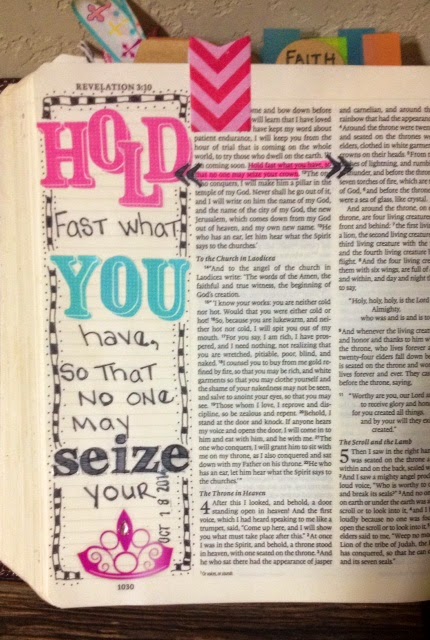 FAITH
REVELATION 3:10
HOLD
Fast what
YOU
have,
so that
no one
may
seize
your
OCT 18 20
1030
me and bow down before
will learn that I have loved
have kept my word about
patient endurance, I will keep you from the
hour of trial that is coming on the whole
world, to try those who dwell on the earth.
coming soon. Hold fast what you have,
that no one may seize your crown.
who conquers, I will make him a pillar in the
temple of my God. Never shall he go out of it,
and I will write on him the name of my God,
and the name of the city of my God, the new
Jerusalem, which comes down from my God
out of heaven, and my own new name. 13He
who has an ear, let him hear what the Spirit
says to the churches.'
To the Church in Laodicea
14"And to the angel of the church in
Laodicea write: 'The words of the Amen, the
faithful and true witness, the beginning of
God's creation.
15"'I know your works: you are neither cold
nor hot. Would that you were either cold or
hot! 16So, because you are lukewarm, and nei-
ther hot nor cold, I will spit you out of my
mouth. 17For you say, I am rich, I have pros-
pered, and I need nothing, not realizing that
you are wretched, pitiable, poor, blind, and
naked. 18I counsel you to buy from me gold re-
fined by fire, so that you may be rich, and white
garments so that you may clothe yourself and
the shame of your nakedness may not be seen,
and salve to anoint your eyes, so that you may
see. 19Those whom I love, I reprove and dis-
cipline, so be zealous and repent. 20Behold, I
stand at the door and knock. If anyone hears
my voice and opens the door, I will come in to
him and eat with him, and he with me. 21The
one who conquers, I will grant him to sit with
me on my throne, as I also conquered and sat
down with my Father on his throne. 22He who
has an ear, let him hear what the Spirit says to
the churches.'"
The Throne in Heaven
4 After this I looked, and behold, a door
standing open in heaven! And the first
voice, which I had heard speaking to me like a
trumpet, said, "Come up here, and I will show
you what must take place after this." 2At once
I was in the Spirit, and behold, a throne stood
in heaven, with one seated on the throne. 3And
he who sat there had the appearance of jasper
and carnelian, and around the
rainbow that had the appearance
4Around the throne were twen
and seated on the thrones we
elders, clothed in white garmen
crowns on their heads. 5From
flashes of lightning, and rumbl
thunder, and before the throne
seven torches of fire, which are
of God, 6and before the throne
were a sea of glass, like crystal.
And around the throne, on
throne, are four living creatures
front and behind: 7the first livi
a lion, the second living creature
third living creature with the
and the fourth living creature
flight. 8And the four living cre
them with six wings, are full of
and within, and day and night
to say,
"Holy, holy, holy, is the Lord
Almighty,
who was and is and is to
9And whenever the living creat
and honor and thanks to him w
the throne, who lives forever a
twenty-four elders fall down be
is seated on the throne and wo
lives forever and ever. They cas
before the throne, saying,
11"Worthy are you, our Lord
to receive glory and hono
for you created all things,
and by your will they exi
created."
The Scroll and the Lamb
5 Then I saw in the right han
was seated on the throne a
within and on the back, sealed w
2And I saw a mighty angel proc
loud voice, "Who is worthy to
and break its seals?" 3And no o
on earth or under the earth was
scroll or to look into it, 4and I
loudly because no one was fou
open the scroll or to look into it.
elders said to me, "Weep no mo
Lion of the tribe of Judah, the
has conquered, so that he can
and its seven seals."